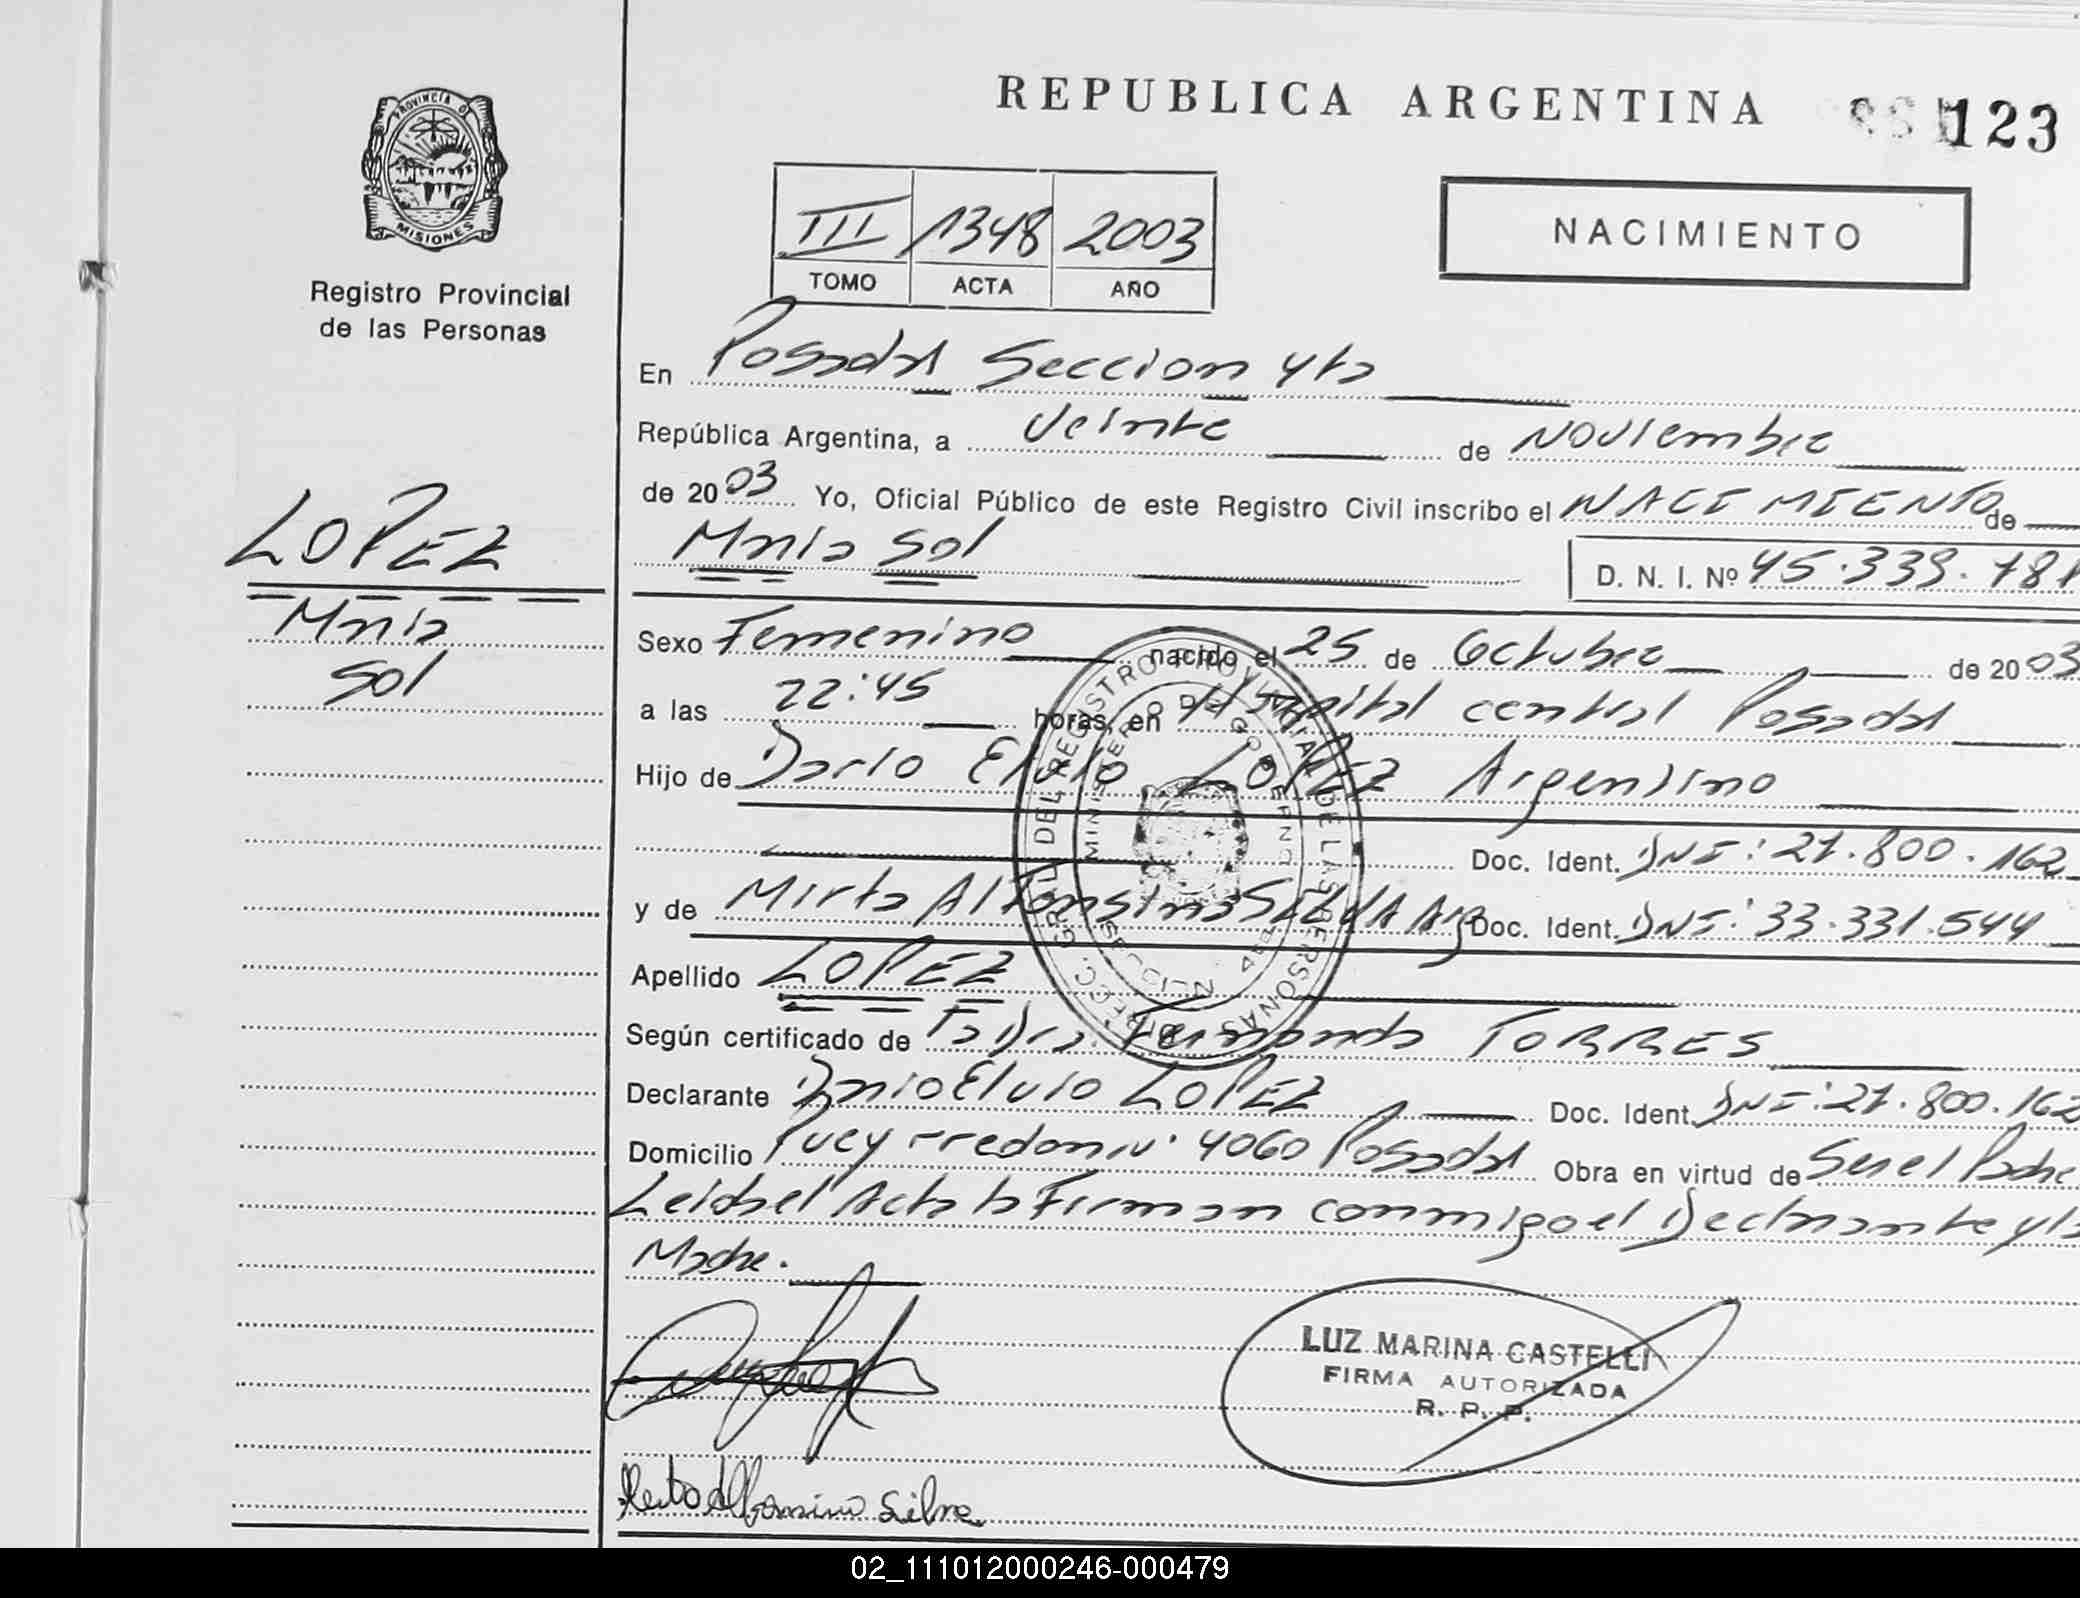 REPUBLICA ARGENTINA
123
PROVINCIA DE
MISIONES
Registro Provincial
de las Personas
III 1348 2003
TOMO ACTA AÑO
NACIMIENTO
En Posadas Seccion 4ta
República Argentina, a Veinte de Noviembre
de 2003 Yo, Oficial Público de este Registro Civil inscribo el NACIMIENTO de
Maria Sol D. N. I. Nº 45.339.781
LOPEZ
Maria
Sol
Sexo Femenino nacido el 25 de Octubre de 2003
a las 22:45 horas, en Hospital central Posadas
Hijo de Dario Elvio LOPEZ Argentino
Doc. Ident. DNI: 21.800.162
y de Mirta Alfonsina SILVA Arg Doc. Ident. DNI: 33.331.544
Apellido LOPEZ
Según certificado de la Dra. Fernanda TORRES
Declarante Dario Elvio LOPEZ Doc. Ident. DNI: 21.800.162
Domicilio Pueyrredon Nº 4060 Posadas Obra en virtud de Ser el Padre
Leida el Acta la Firman conmigo el Declarante y la
Madre.
DIRECC. GRAL. DEL REGISTRO PROVINCIAL DE LAS PERSONAS
LUZ MARINA CASTELLI
FIRMA AUTORIZADA
R. P. P.
Mirta Alfonsina Silva
02_111012000246-000479